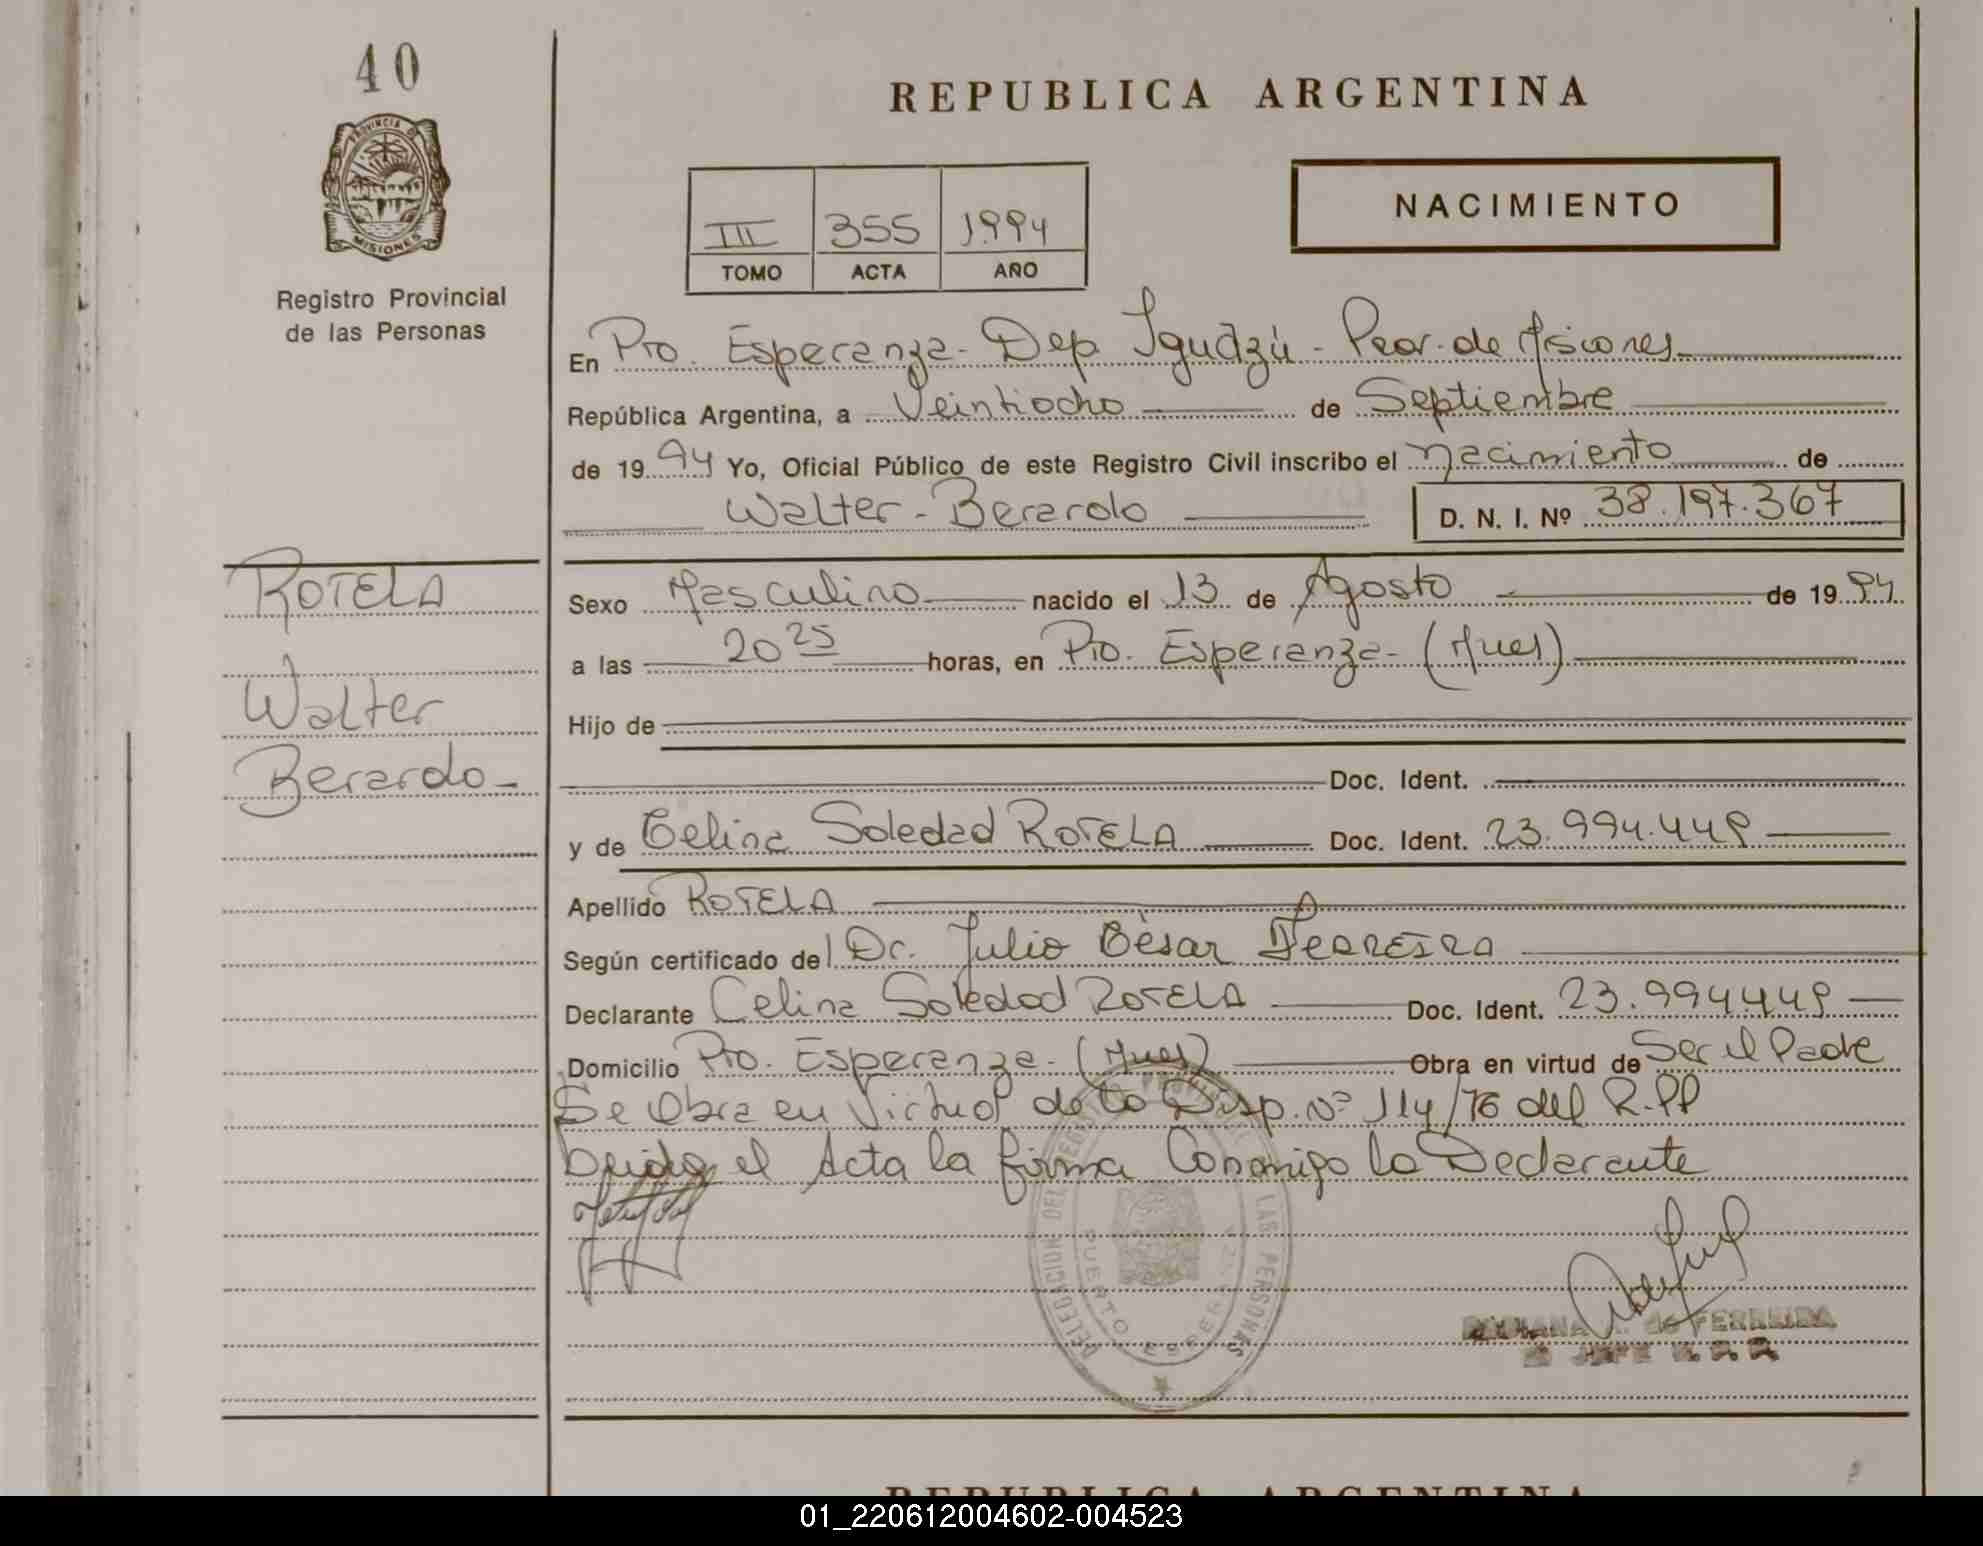 40
PROVINCIA DE
MISIONES
Registro Provincial
de las Personas
REPUBLICA ARGENTINA
III 355 1994
TOMO ACTA AÑO
NACIMIENTO
En Pto. Esperanza - Dep. Iguazú - Pcia. de Misiones
República Argentina, a Veintiocho de Septiembre
de 1994 Yo, Oficial Público de este Registro Civil inscribo el nacimiento de
Walter - Berardo D. N. I. Nº 38.197.367
ROTELA
Walter
Berardo
Sexo Masculino nacido el 13 de Agosto de 1994
a las 20 25 horas, en Pto. Esperanza - (Mnes)
Hijo de
Doc. Ident.
y de Celina Soledad ROTELA Doc. Ident. 23.994.449
Apellido ROTELA
Según certificado del Dr. Julio Cèsar FERREIRA
Declarante Celina Soledad ROTELA Doc. Ident. 23.994.449
Domicilio Pto. Esperanza - (Mnes) Obra en virtud de Ser el Padre
Se Obra en Virtud de la Disp. Nº 114/76 del R.PP
el Acta la firma Conmigo la Declarante
DELEGACION DEL REGISTRO PROVINCIAL LAS PERSONAS
PUERTO ESPERANZA
de FERREIRA
JEFE R. P. P.
REPUBLICA ARGENTINA
01_220612004602-004523